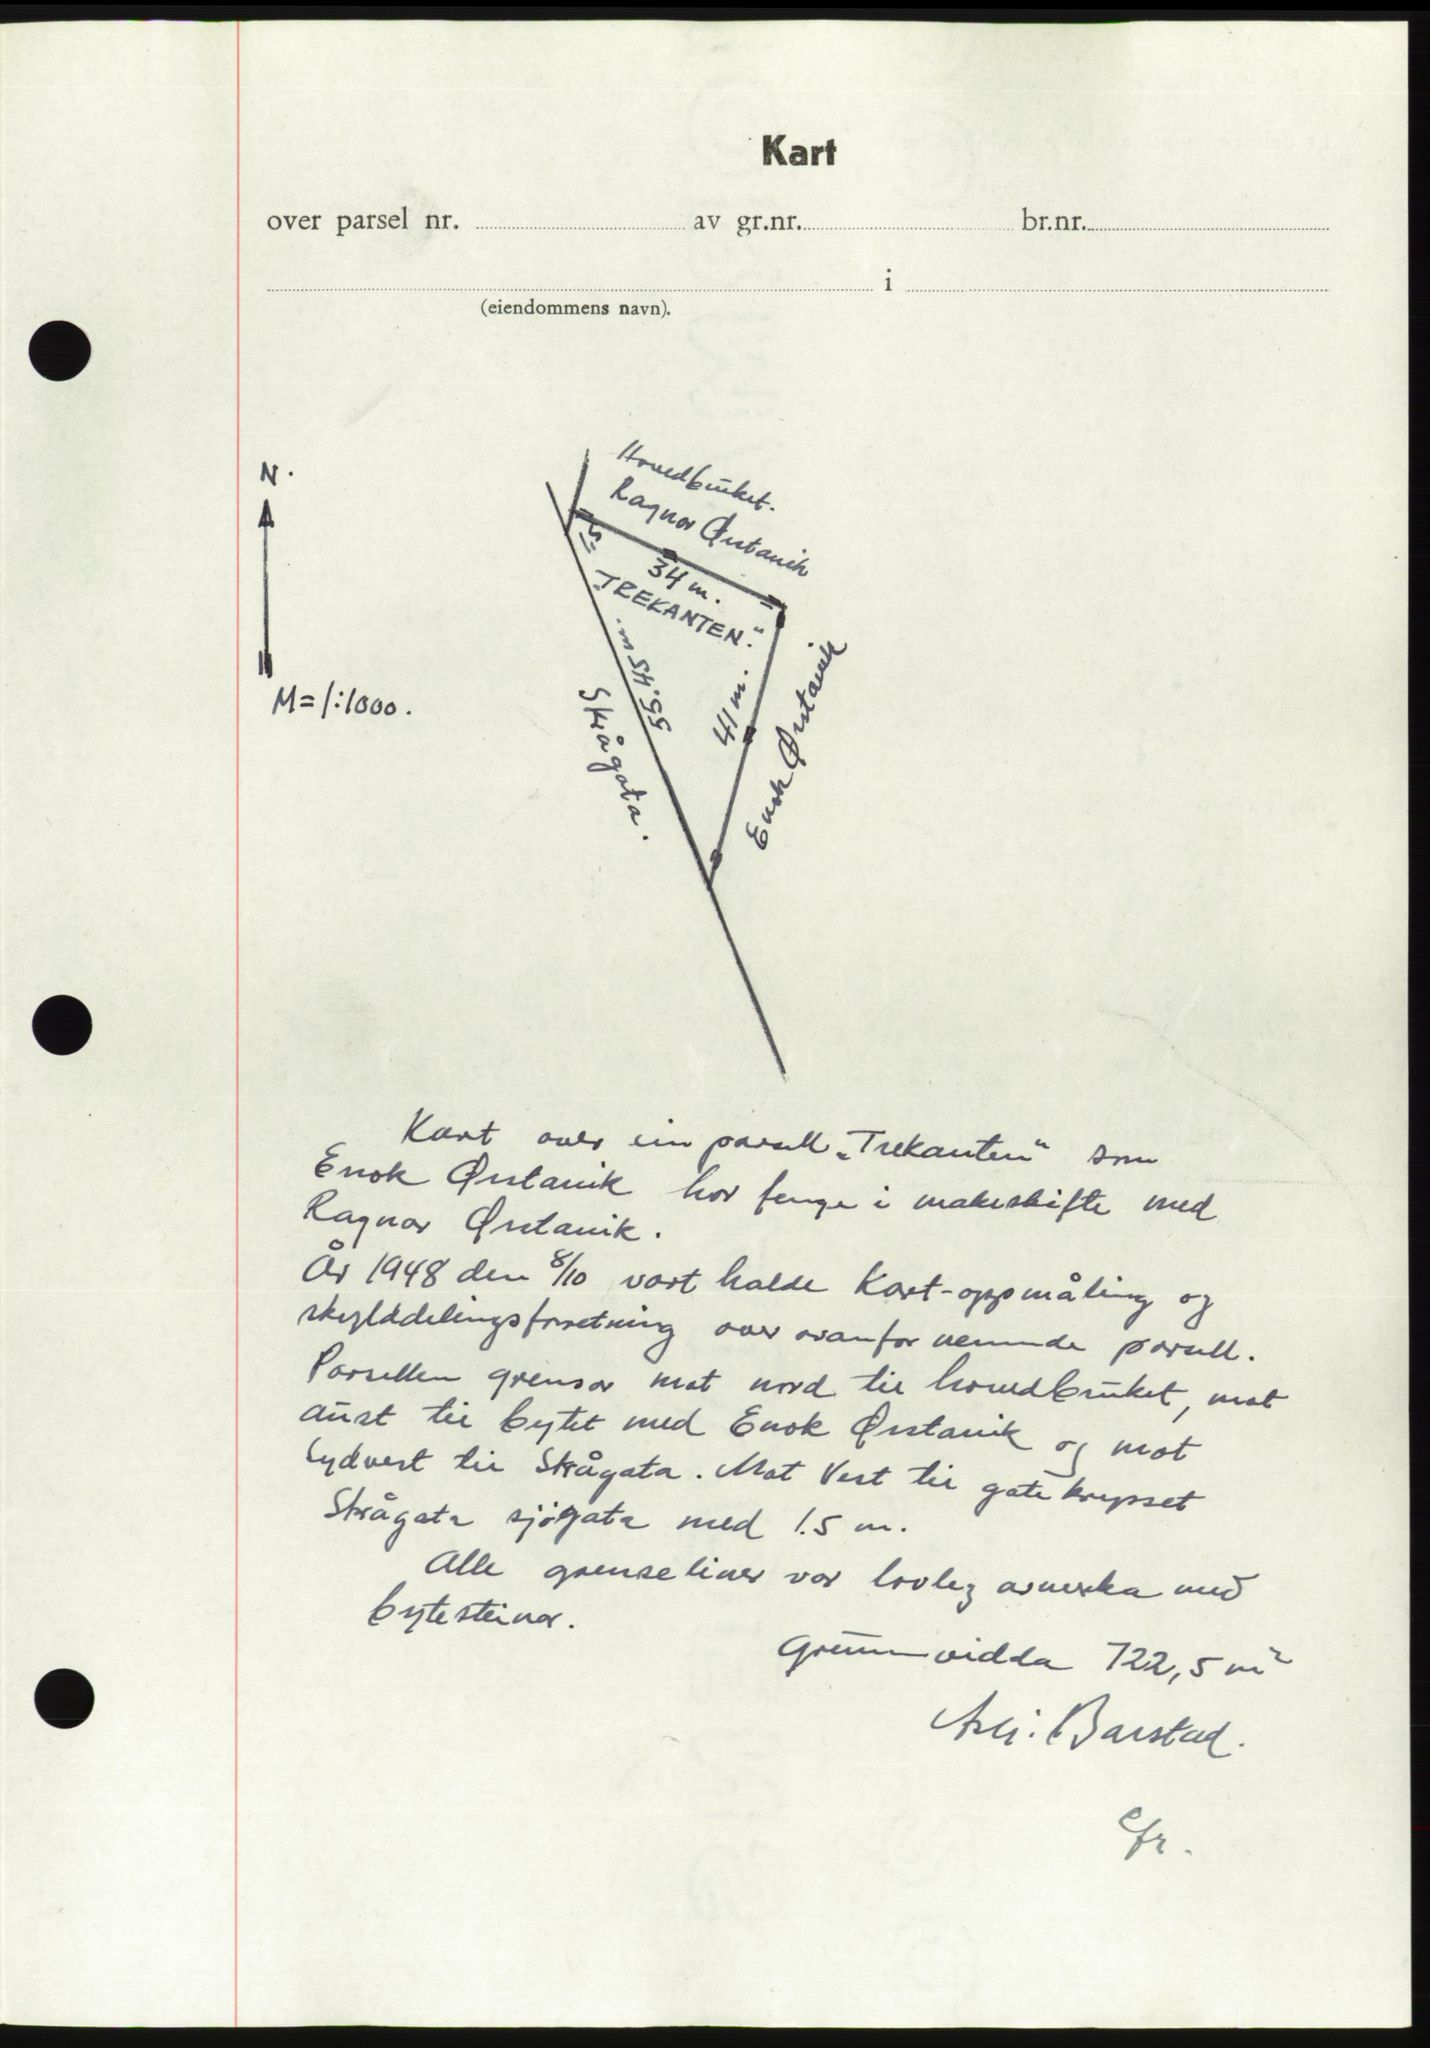 Kart
over parsel nr. av gr.nr. br.nr.
i
(eiendommens navn).
N.
M = 1:1000.
Hovedbruket.
Ragnar Ørstavik
34 m.
"TREKANTEN."
55.45 m.
41 m.
Skrågata.
Enok Ørstavik
Kart over ein parsell „Trekanten" som
Enok Ørstavik har fenge i makeskifte med
Ragnar Ørstavik.
År 1948 den 8/10 vart halde Kart-oppmåling og
skylddelingsforretning over ovanfor nemnde parsell.
Parsellen grensar mot nord til hovedbruket, mot
aust til bytet med Enok Ørstavik og mot
Sydvest til Skrågata. Mot Vest til gatekrysset
Skrågata sjøgata med 1.5 m.
Alle grenseliner var lovleg avmerka med
bytesteinar.
Grunnvidda 722,5 m²
Barstad.